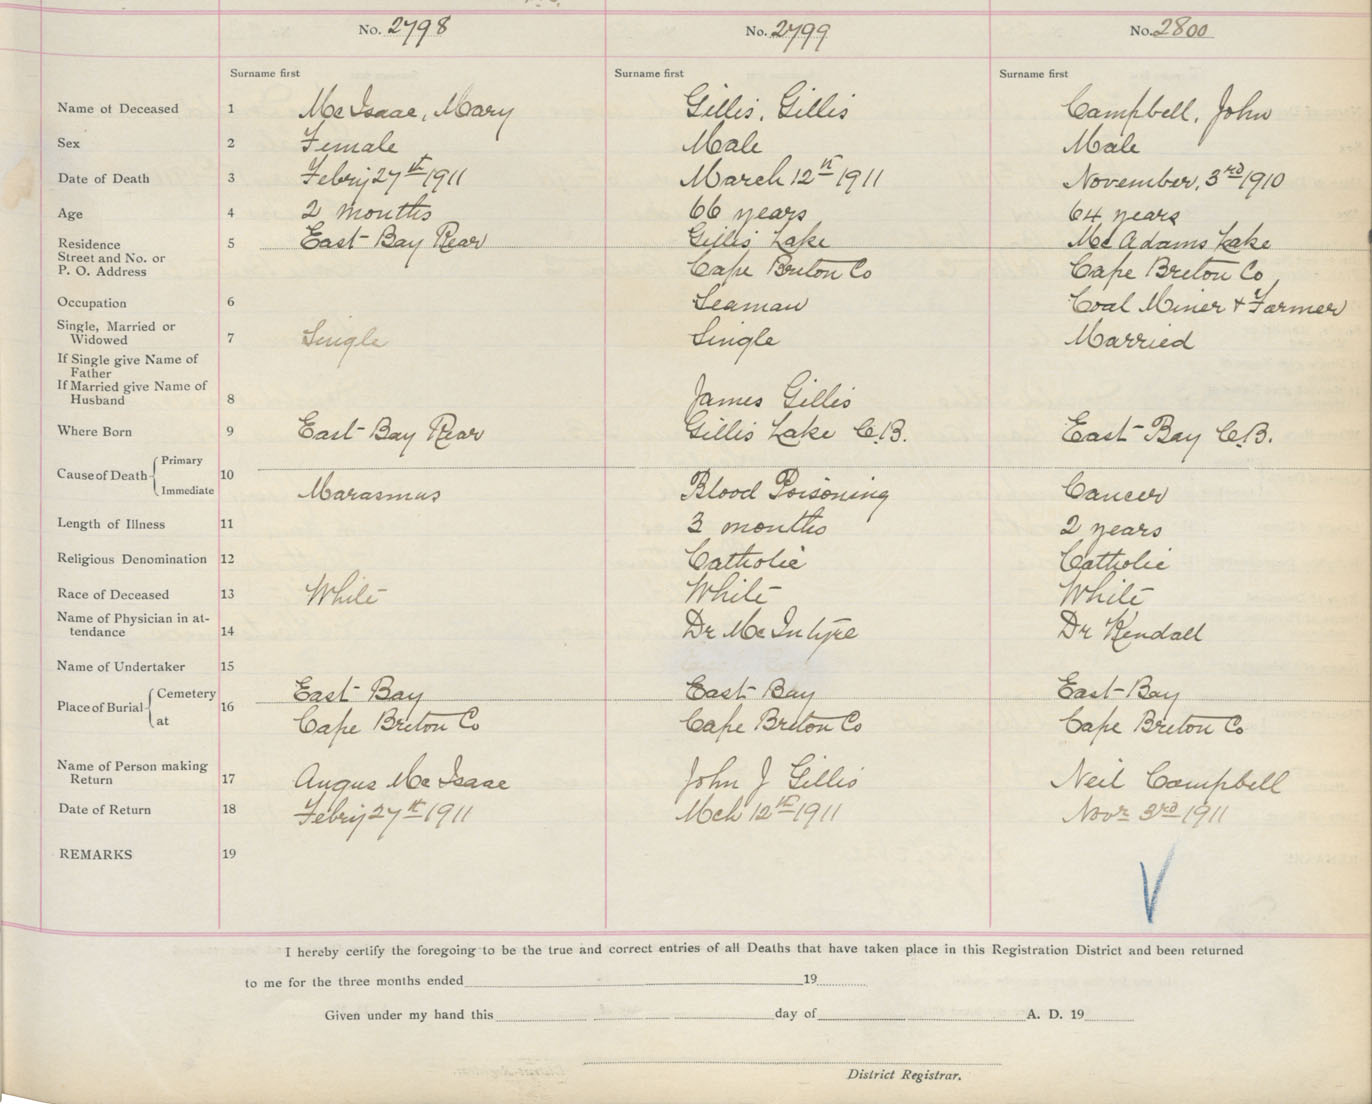 No. 2798 No. 2799 No. 2800
Surname first Surname first Surname first
Name of Deceased 1 McIsaac, Mary Gillis, Gillis Campbell, John
Sex 2 Female Male Male
Date of Death 3 Febry 27th 1911 March 12th 1911 November, 3rd 1910
Age 4 2 months 66 years 64 years
Residence 5 East Bay Rear Gillis Lake McAdams Lake
Street and No. or
P. O. Address Cape Breton Co Cape Breton Co
Occupation 6 Seaman Coal Miner & Farmer
Single, Married or
Widowed 7 Single Single Married
If Single give Name of
Father
If Married give Name of
Husband 8 James Gillis
Where Born 9 East Bay Rear Gillis Lake C.B. East Bay C.B.
Cause of Death Primary 10
Immediate Marasmus Blood Poisoning Cancer
Length of Illness 11 3 months 2 years
Religious Denomination 12 Catholic Catholic
Race of Deceased 13 White White White
Name of Physician in at-
tendance 14 Dr McIntyre Dr Kendall
Name of Undertaker 15
Place of Burial Cemetery 16 East Bay East Bay East Bay
at Cape Breton Co Cape Breton Co Cape Breton Co
Name of Person making
Return 17 Angus McIsaac John J Gillis Neil Campbell
Date of Return 18 Febry 27th 1911 Mch 12th 1911 Novr 3rd 1911
REMARKS 19
I hereby certify the foregoing to be the true and correct entries of all Deaths that have taken place in this Registration District and been returned
to me for the three months ended 19
Given under my hand this day of A. D. 19
District Registrar.